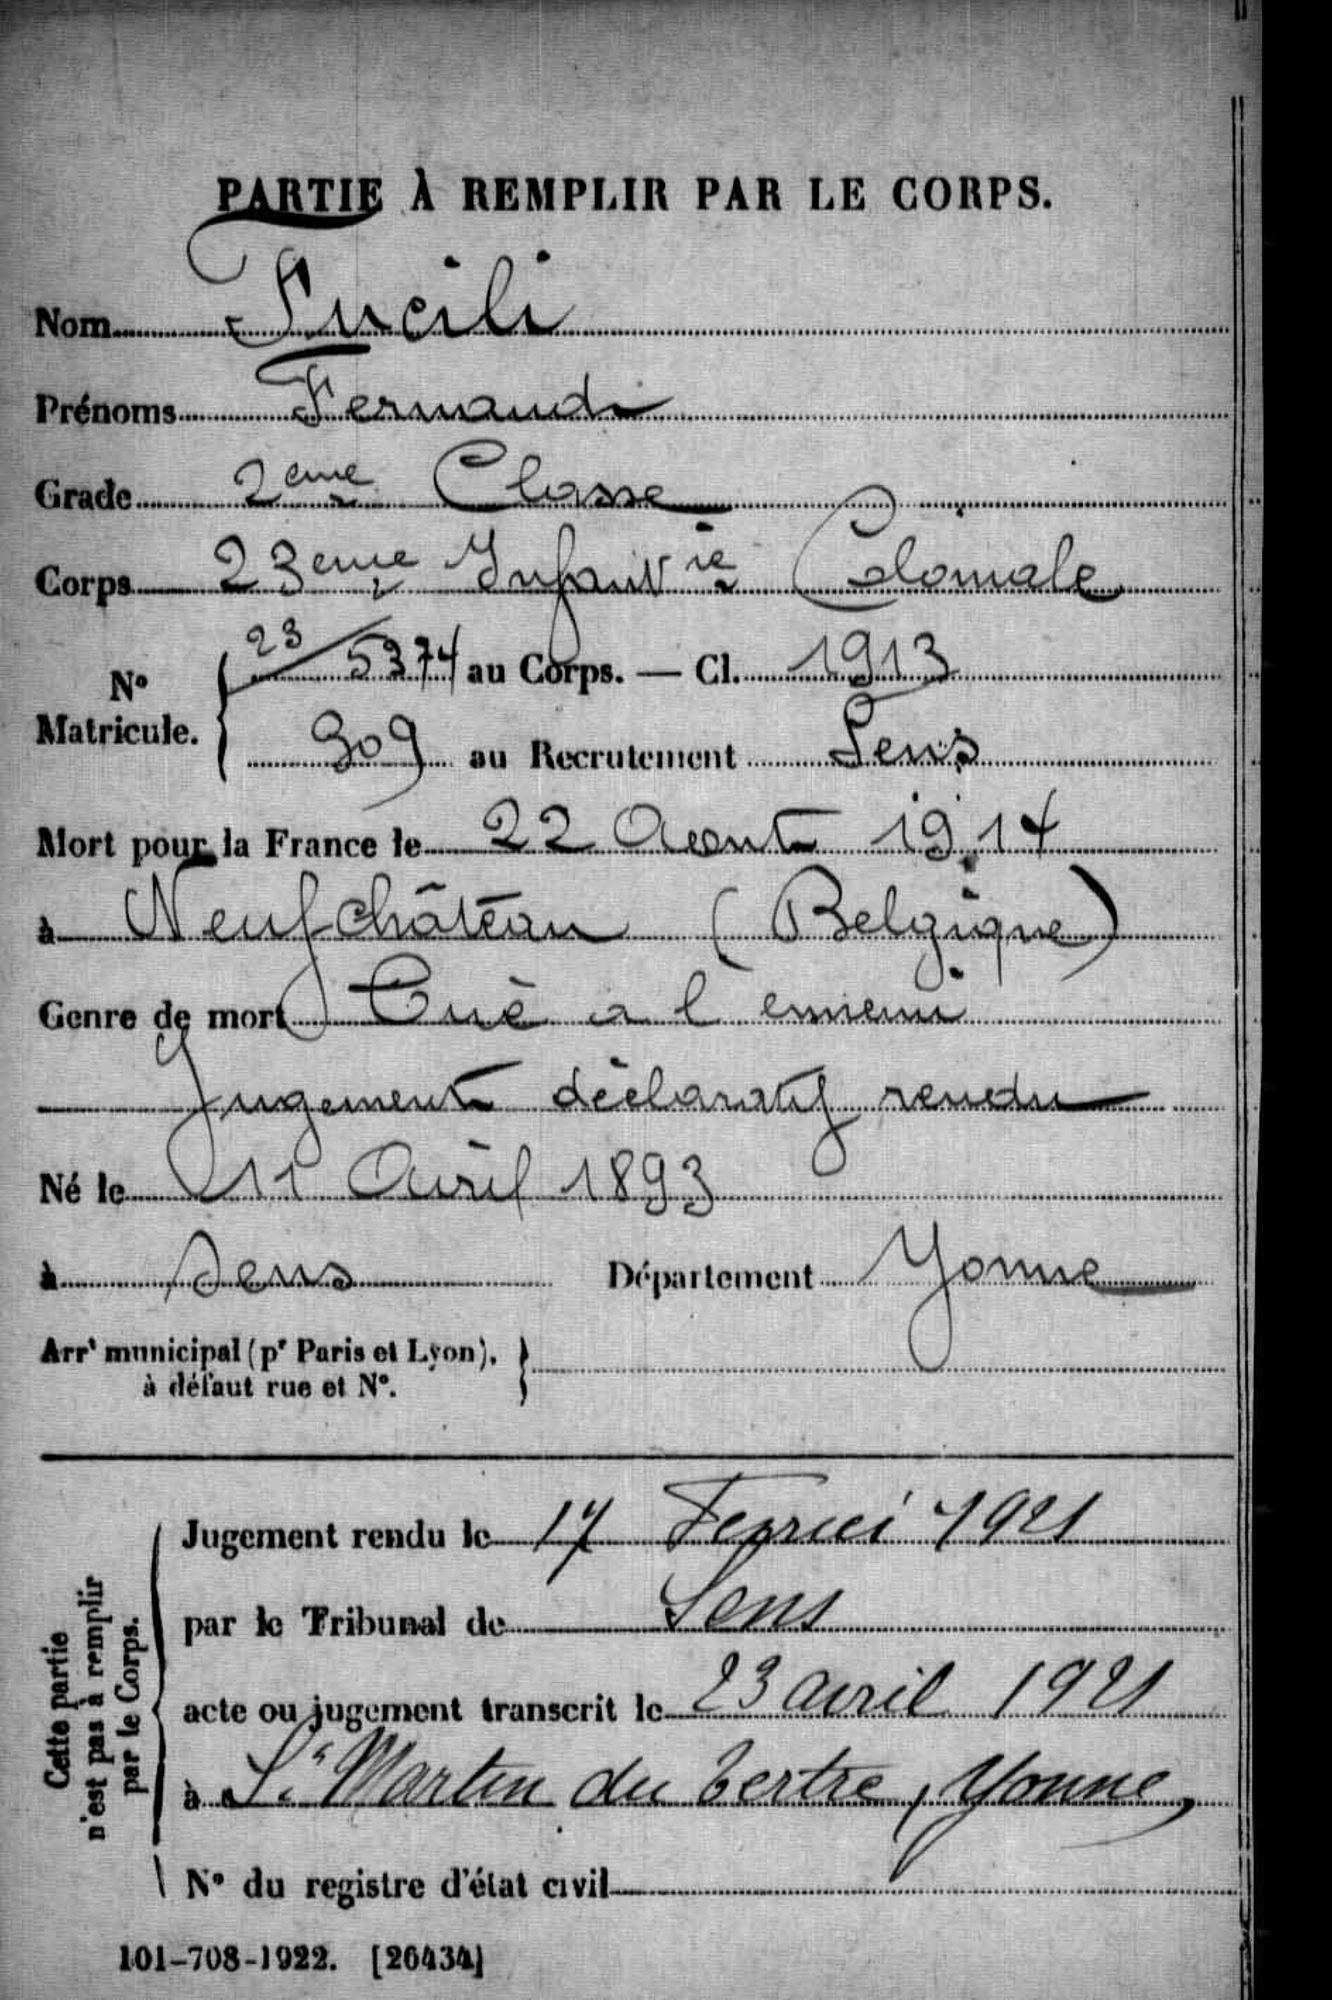 PARTIE À REMPLIR PAR LE CORPS.
Nom Fucili
Prénoms Fernand
Grade 2eme Classe
Corps 23eme Infant rie Coloniale
No Matricule. { 23/5374 au Corps. — Cl. 1913
909 au Recrutement Sens
Mort pour la France le 22 Aout 1914
à Neufchâteau (Belgique)
Genre de mort Tué a l ennemi
Jugement déclaratif rendu
Né le 11 Avril 1893
à Sens Département Yonne
Arrt municipal (pr Paris et Lyon), à défaut rue et No. }
Cette partie n'est pas à remplir par le Corps.
Jugement rendu le 17 Fevrier 1921
par le Tribunal de Sens
acte ou jugement transcrit le 23 avril 1921
à St Martin du Tertre, Yonne,
No du registre d'état civil
101-708-1922. [26434]